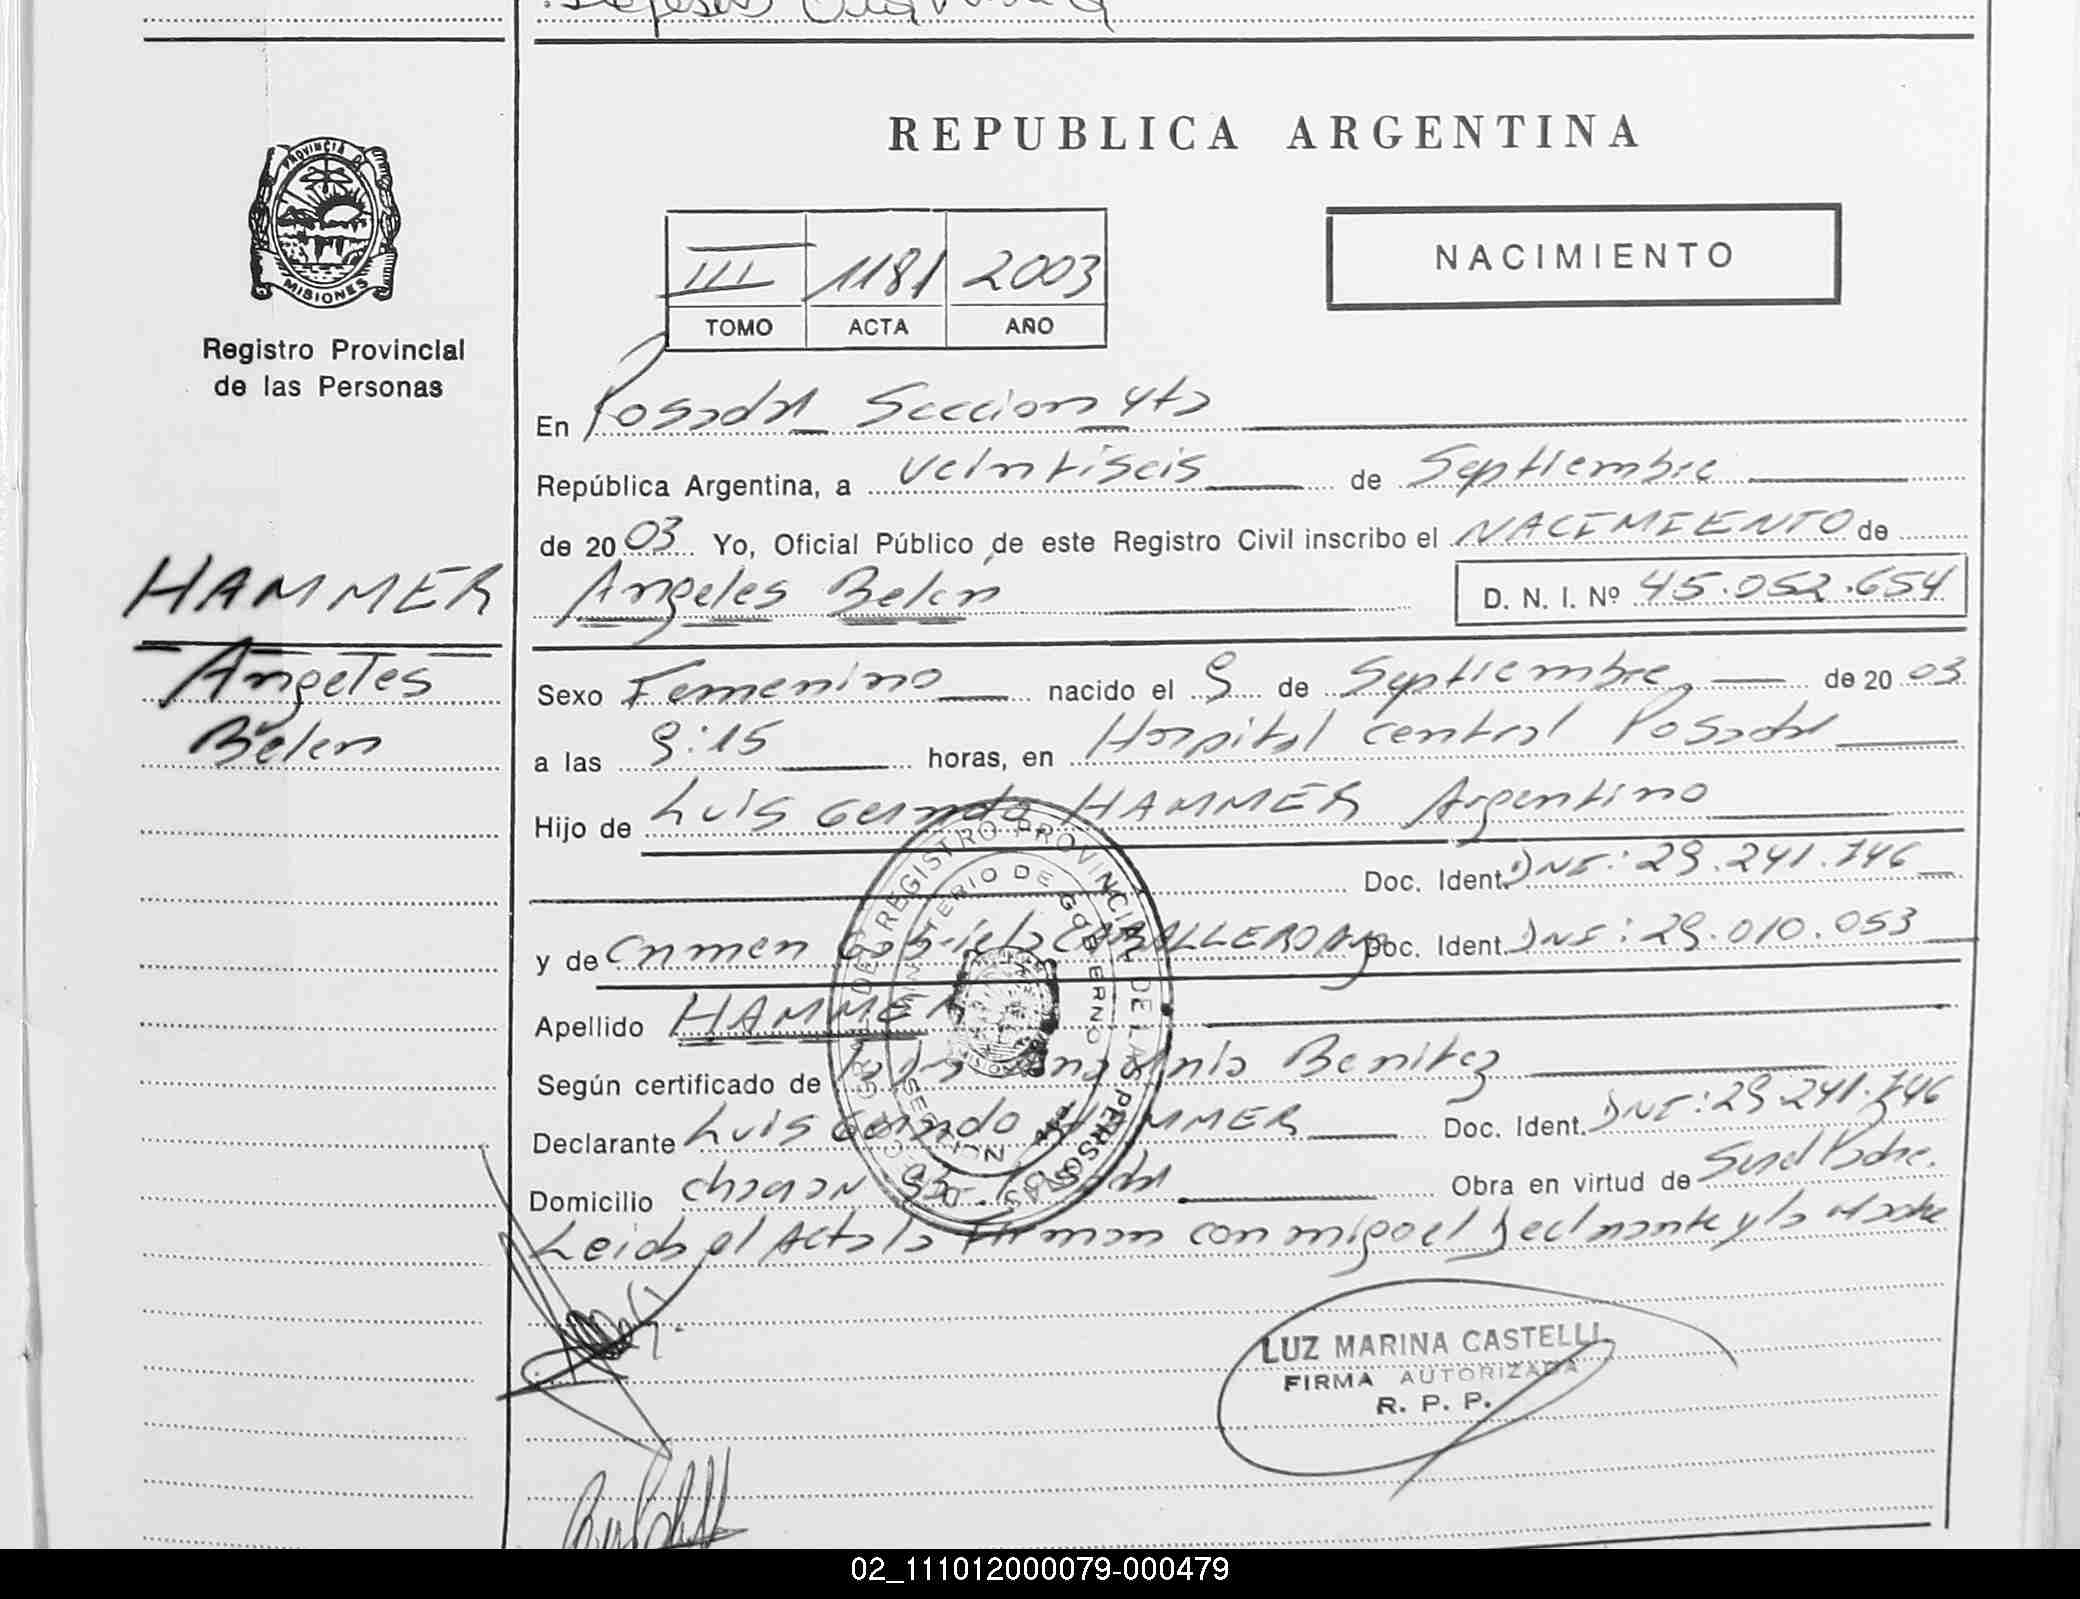 REPUBLICA ARGENTINA
PROVINCIA DE
MISIONES
Registro Provincial
de las Personas
III 1181 2003
TOMO ACTA AÑO
NACIMIENTO
En Posadas Seccion 4ta
República Argentina, a veintiseis de Septiembre
de 2003 Yo, Oficial Público de este Registro Civil inscribo el NACIMIENTO de
Angeles Belen D. N. I. Nº 45.052.654
HAMMER
Angeles
Belen
Sexo Femenino nacido el 9 de Septiembre de 2003
a las 9:15 horas, en Hospital Central Posadas
Hijo de Luis HAMMER Argentino
Doc. Ident. DNI: 29.241.746
y de Carmen Gabriela CABALLERO Arg Doc. Ident. DNI: 29.010.053
Apellido HAMMER
Según certificado de Benitez
Declarante Luis HAMMER Doc. Ident. DNI: 29.241.746
Domicilio Obra en virtud de Ser el Padre.
Leida el Acta la Firman conmigo el Declarante y la Madre
REGISTRO PROVINCIAL DE LAS PERSONAS
MINISTERIO DE GOBIERNO
LUZ MARINA CASTELLI
FIRMA AUTORIZADA
R. P. P.
02_111012000079-000479